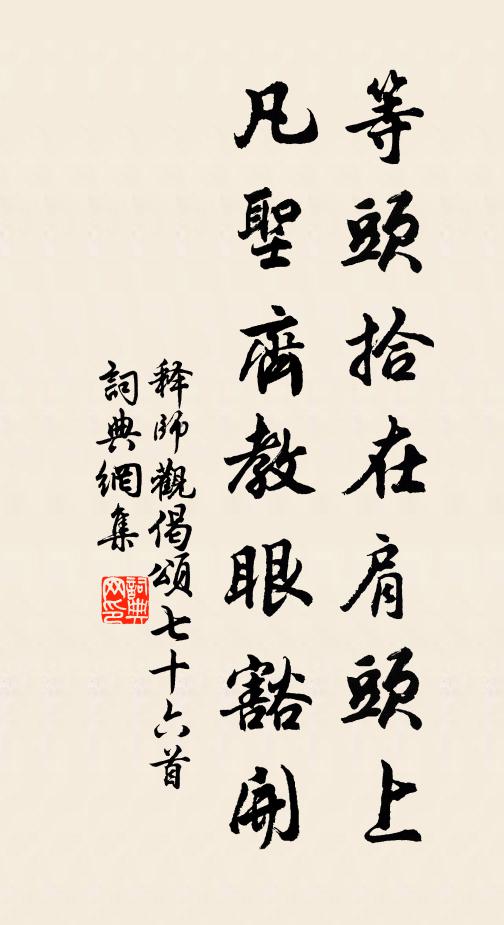 等頭拾在肩頭上
凡聖齊教眼豁開
释師觀偈頌七十六首
詞典網集
詞典
网印